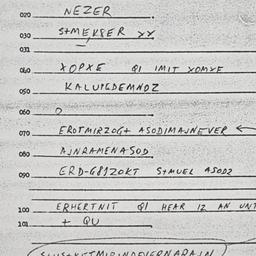 020 NEZER
030 S+MEKSER XX
031
040 XOPXE QI IMIT XOMXE
050 KALUPGDEMNDZ
060 O
070 EROTMIRZOG+ ASODIMAJNEVER ←
080 AJNRAMENASOD
090 ERD-G81ZOKT S+MUEL ASODZ
100 ERHERTNIT QI HEAR IZ AN UNT
101 + QU